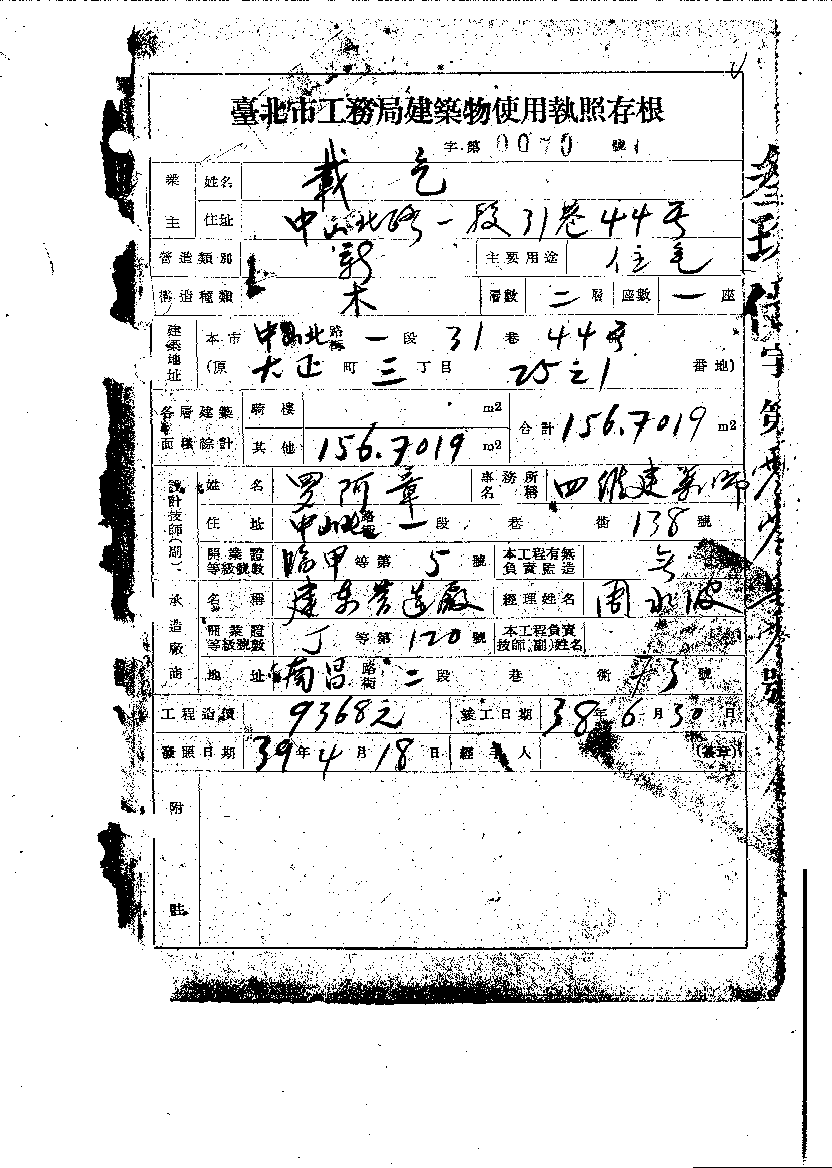 臺北市工務局建築物使用執照存根
字第0070號
業主 姓名 戴
住址 中山北路一段31巷44号
營造類別 新 主要用途 住宅
營造種類 木 層數 二層 座數 一座
建築地址 本市 中山北路街 一段 31巷 44号
(原 大正町三丁目 25之1 番地)
各層建築面積綜計 騎樓 m2 合計 156.7019 m2
其他 156.7019 m2
設計技師(副) 姓名 罗阿章 事務所名稱 四維建築師
住址 中山北路街 一段 巷 衖 138號
開業證等級號數 臨甲等第5號 本工程有無負責監造 無
承造廠商 名稱 建東营造廠 經理姓名 周永波
開業證等級號數 丁等第120號 本工程負責技師(副)姓名
地址 南昌路街 二段 巷 衖 43號
工程造價 9368元 竣工日期 38年6月30日
發照日期 39年4月18日 經手人 (簽章)
附註